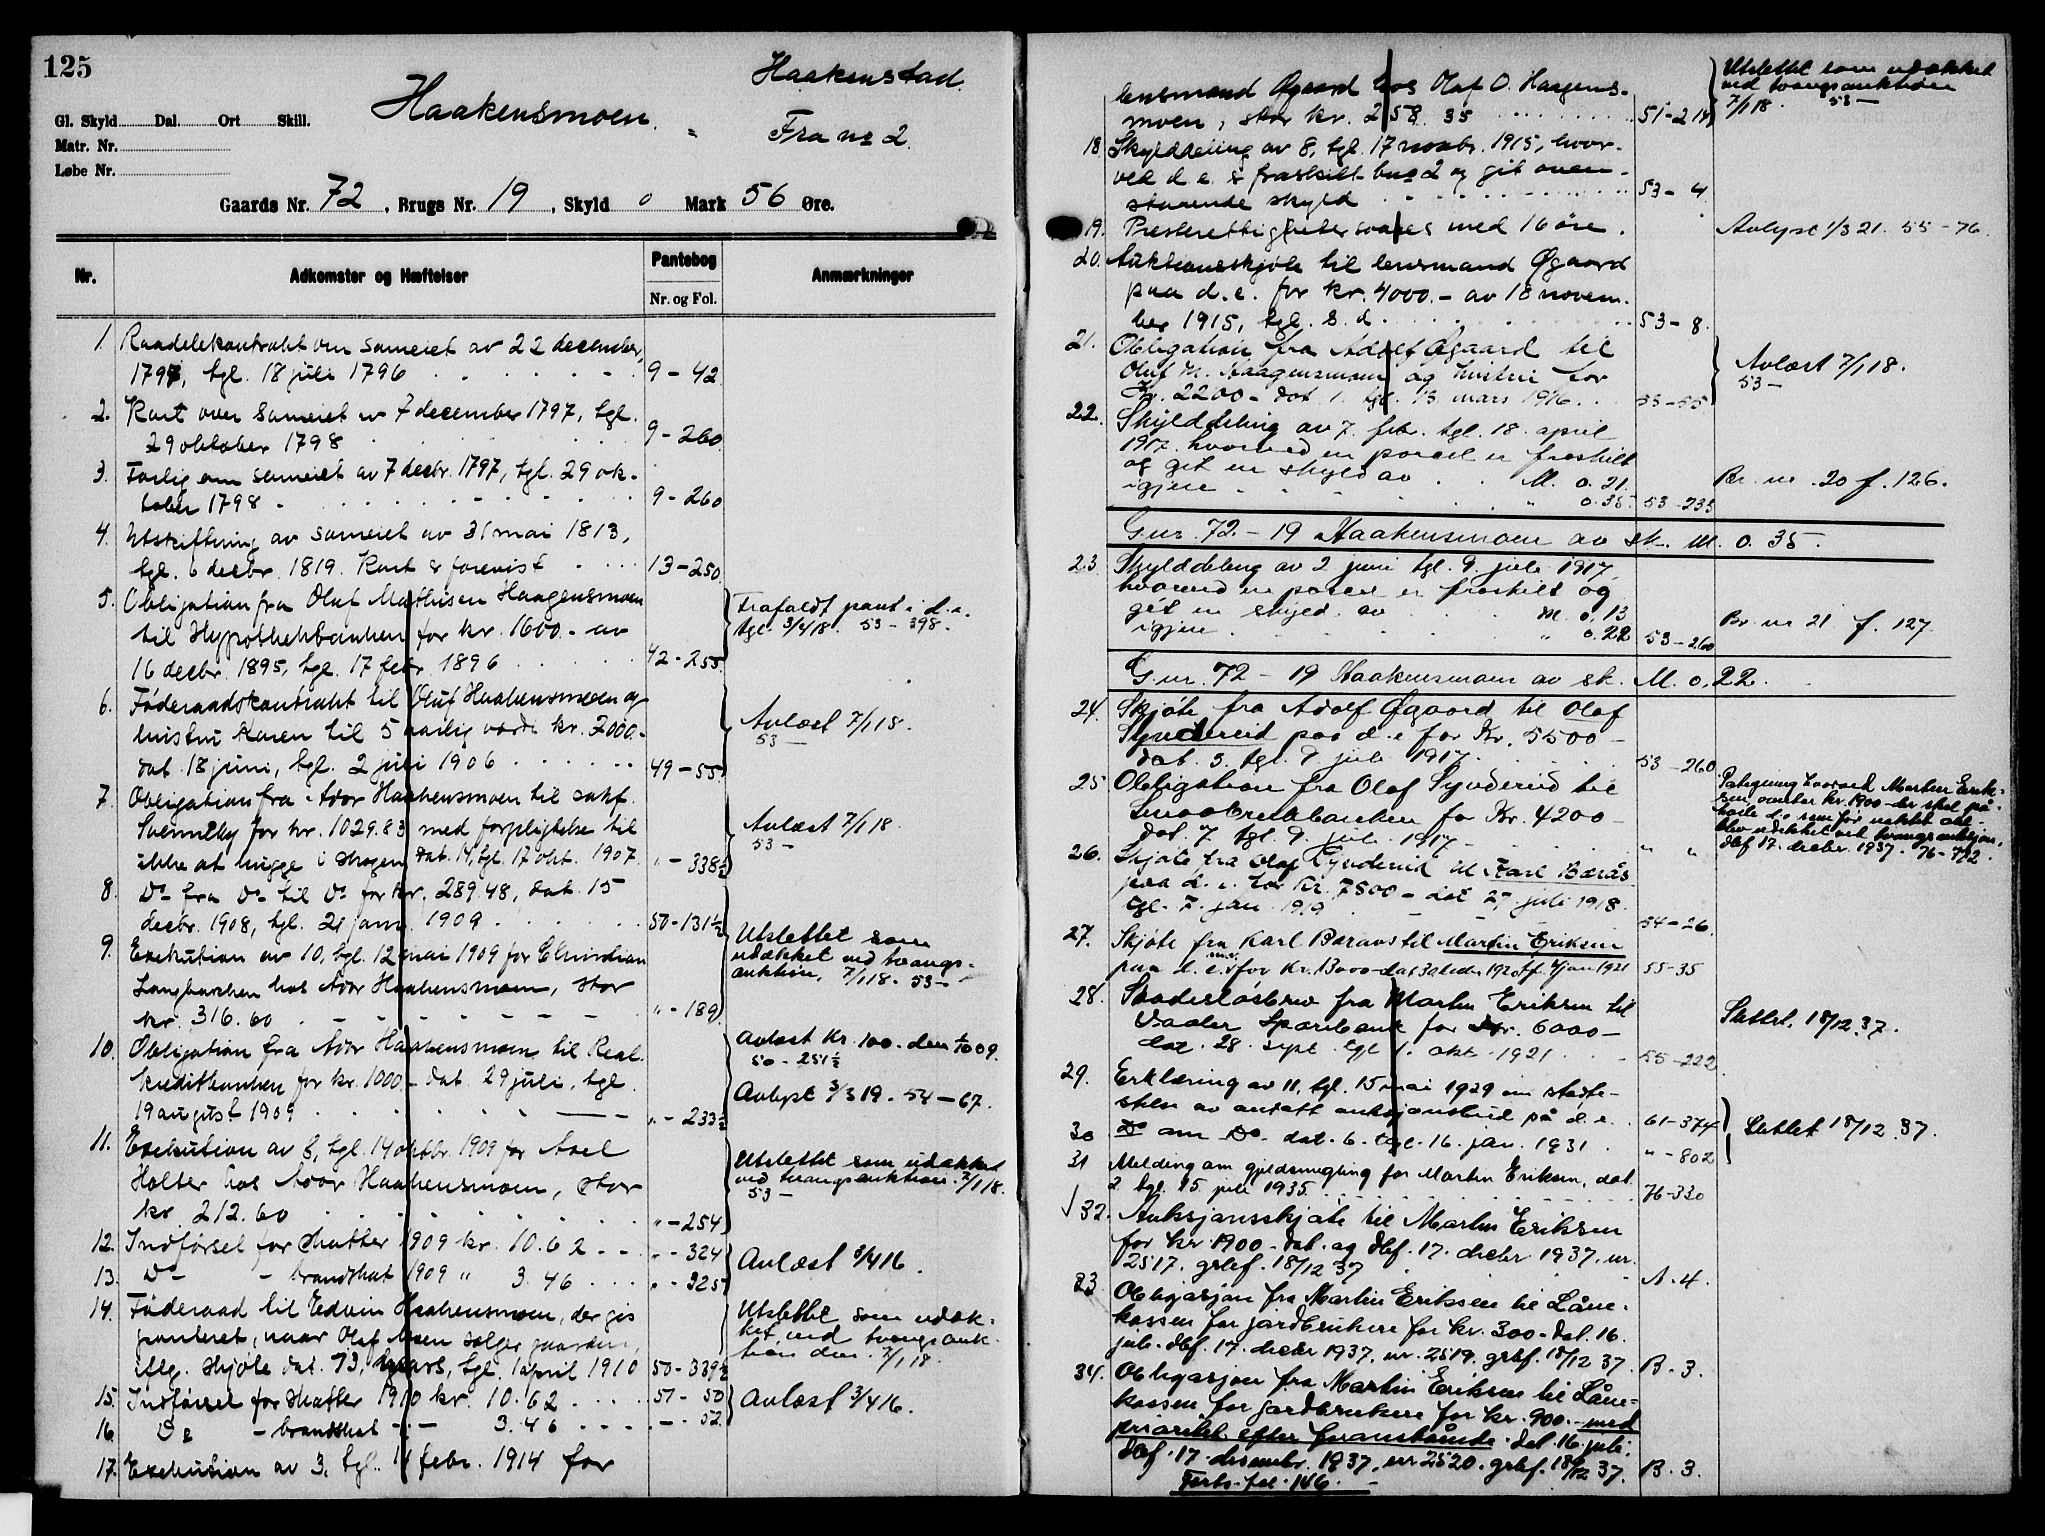 125
Haakensmoen.
Haakenstad.
Fra no 2.
Gl. Skyld Dal. Ort Skill.
Matr. Nr.
Løbe Nr.
Gaards Nr. 72, Brugs Nr. 19, Skyld 0 Mark 56 Øre.
Nr. Adkomster og Hæftelser Pantebog Anmærkninger
Nr. og Fol.
1. Raadelekontrakt om sameiet av 22 december,
1797, tgl. 18 juli 1796 9 - 42
2. Kart over sameiet av 7 december 1797, tgl.
29 oktober 1798 9 - 260
3. Forlig om sameiet av 7 decbr. 1797, tgl. 29 ok-
tober 1798 9 - 260
4. Utskiftning av sameiet av 31 mai 1813,
tgl. 6 decbr. 1819. Kart er forevist 13 - 250
5. Obligation fra Oluf Mathisen Haagensmoen
til Hypothekbanken for kr. 1600.- av
16 decbr. 1895, tgl. 17 febr 1896 42 - 255
Frafaldt pant i d.e.
tgl. 3/4 18. 53 - 398.
6. Føderaadskontrakt til Oluf Haakensmoen og
hustru Karen til 5 aarlig værdi kr. 2000.-
dat. 18 juni, tgl. 2 juli 1906 49 - 55
Avlæst 7/1 18.
53 -
7. Obligation fra Ador Haakensmoen til sakf.
for kr. 1029.83 med forpligtelse til
ikke at hugge i skogen, dat. 14, tgl. 17 okt. 1907 " - 338½
Avlæst 7/1 18.
53 -
8. Do fra Do til Do for kr. 289.48, dat. 15
decbr. 1908, tgl. 21 jan. 1909 50 - 131½
9. Exekution av 10, tgl. 12 mai 1909 for
hos Ador Haakensmoen, stor
kr. 316.60 " - 189
Utslettet som
udækket ved tvangs-
auktion. 7/1 18. 53 -
10. Obligation fra Ador Haakensmoen til Real-
kreditbanken for kr. 1000 - dat. 29 juli, tgl.
19 august 1909 " - 233½
Avlæst Kr. 100. den 09.
50 - 251½
Avlyst 3/3 19. 54 - 67.
11. Exekution av 8, tgl. 14 oktbr. 1909 for Axel
Holter hos Ador Haakensmoen, stor
kr. 212.60 " - 254
Utslettet som udækket
ved tvangsauktion. 7/1 18.
53 -
12. Indførsel for skatter 1909 kr. 10.62 " - 324
13. Do - brandskat 1909 " 3.46 " - 325
Avlæst 3/4 16.
14. Føderaad til Edvin Haakensmoen, der gis
panteret, naar Olaf Moen sælger gaarden,
iflg. skjøte dat. 13, mars, tgl. 1 april 1910 50 - 339½
Utslettet som udæk-
ket ved tvangsauk-
tion den. 7/1 18.
15. Indførsel for skatter 1910 kr. 10.62 51 - 50
16. Do - brandskat - " - 3.46 " - 52
Avlæst 3/4 16.
17. Exekution av 3, tgl. 11 febr. 1914 for
lensmand Øgaard hos Olaf O. Haagens-
moen, stor kr. 258.35 51 - 214
Utslettet som udækket
ved tvangsauktion
7/1 18. 53 -
18. Skylddeling av 8, tgl. 17 novbr. 1915, hvor-
ved d.e. er fraskilt bno 2 og git oven-
staaende skyld 53 - 4
19. Presterettigheter svares med 16 øre.
Avlyst 1/3 21. 55 - 76.
20. Auktionsskjøte til lensmand Øgaard
paa d.e. for kr. 4000.- av 18 novem-
ber 1915, tgl. s.d. 53 - 8.
21. Obligation fra Adolf Øgaard til
Oluf M. Haagensmoen og hustru for
Kr. 2200 - dat. 1. tgl. 13. mars 1916. 53 - 55
Avlæst 7/1 18.
53 -
22. Skylddeling av 7. febr. tgl. 18. april
1917. hvorved en parcel er fraskilt
og git en skyld av M. 0.21.
igjen " 0.35. 53 - 235
Br. nr. 20 f. 126.
Gnr. 72 - 19 Haakensmoen av sk. M. 0.35.
23. Skylddeling av 2 juni tgl. 9. juli 1917,
hvorved en parcel er fraskilt og
git en skyld av M. 0.13
igjen " 0.22 53 - 260
Br. nr 21 f. 127.
Gnr. 72 - 19 Haakensmoen av sk. M. 0.22.
24. Skjøte fra Adolf Øgaard til Olaf
Synderud paa d.e. for Kr. 5500 -
dat. 3. tgl. 9 juli 1917. 53 - 260.
25 Obligation fra Olaf Synderud til
Smaabrukbanken for Kr. 4200 -
dat. 7. tgl. 9. juli 1917 " "
Pategning hvorved Martin Erik-
sen overtar kr. 1900 - der skal på-
hvile d.e. som før
blev udækket ved tvangsauksjon,
dbf 17. decbr. 1937. 76 - 792.
26. Skjøte fra Olaf Synderud til Karl Barås
paa d.e. for Kr. 7500 - dat 27. juli 1918.
tgl. 7. jan 1919 54 - 26.
27. Skjøte fra Karl Baraas til Martin Eriksen
paa d.e. m.v. for Kr. 13000 - dat 1920 tgl. 4 jan 1921 55 - 35
28. Skadesløsbrev fra Martin Eriksen til
Vaaler Sparebank for Kr. 6000 -
dat. 28. sept. tgl 1. okt. 1921 55 - 222.
Slettet. 18/12 37.
29. Erklæring av 11, tgl. 15 mai 1929 om stadfe-
stelse av antatt auksjonsbud på d.e. 61 - 374
30 Do om Do. dat. 6. tgl. 16. jan. 1931 " - 802
Slettet 18/12 37.
31 Melding om gjeldsmegling for Martin Eriksen, dat.
2. tgl. 15. juli 1935. 76 - 330
32. Auksjonsskjøte til Martin Eriksen
for kr. 1900 - dat. og dbf. 17. decbr 1937, nr.
2517. grbf. 18/12 37 A. 4.
33 Obligasjon fra Martin Eriksen til Låne-
kassen for jordbrukere for kr. 300 - dat. 16.
juli. dbf. 17. decbr 1937, nr. 2519. grbf. 18/12 37. B. 3.
34. Obligasjon fra Martin Eriksen til Låne-
kassen for jordbrukere for kr. 900.- med
prioritet efter foranstående. dat. 16 juli.
dbf. 17. desembr. 1937, nr 2520. grbf. 18/12 37. B. 3.
Forts. fol. 146.